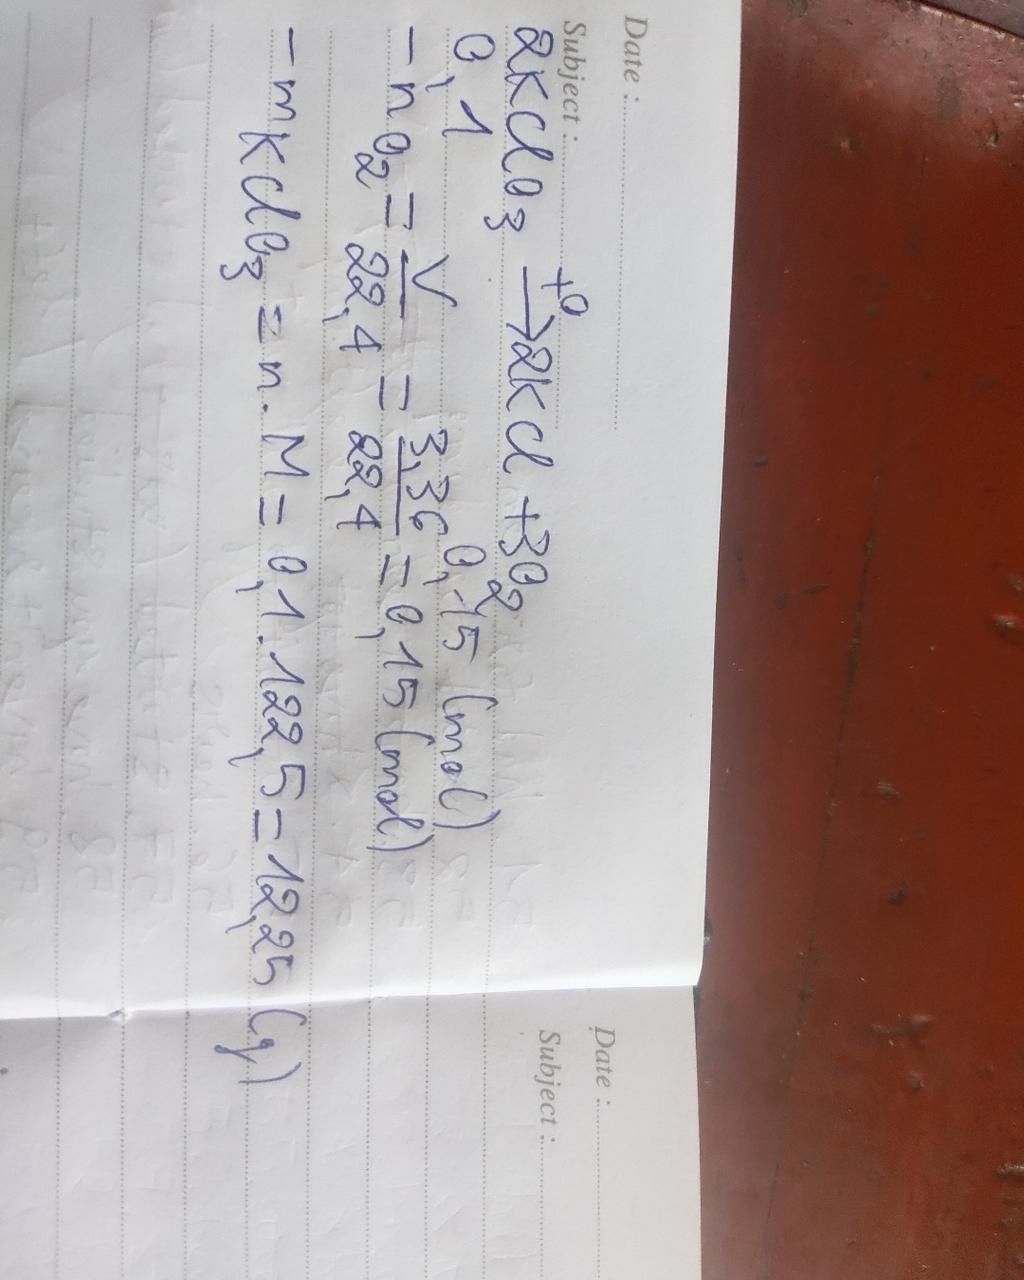 Date :
Subject :
2KClO3 +0 → 2KCl + 3O2
0,1 0,15 (mol)
- nO2 = V/22,4 = 3,36/22,4 = 0,15 (mol)
- mKClO3 = n.M = 0,1.122,5 = 12,25 (g)
Date :
Subject :